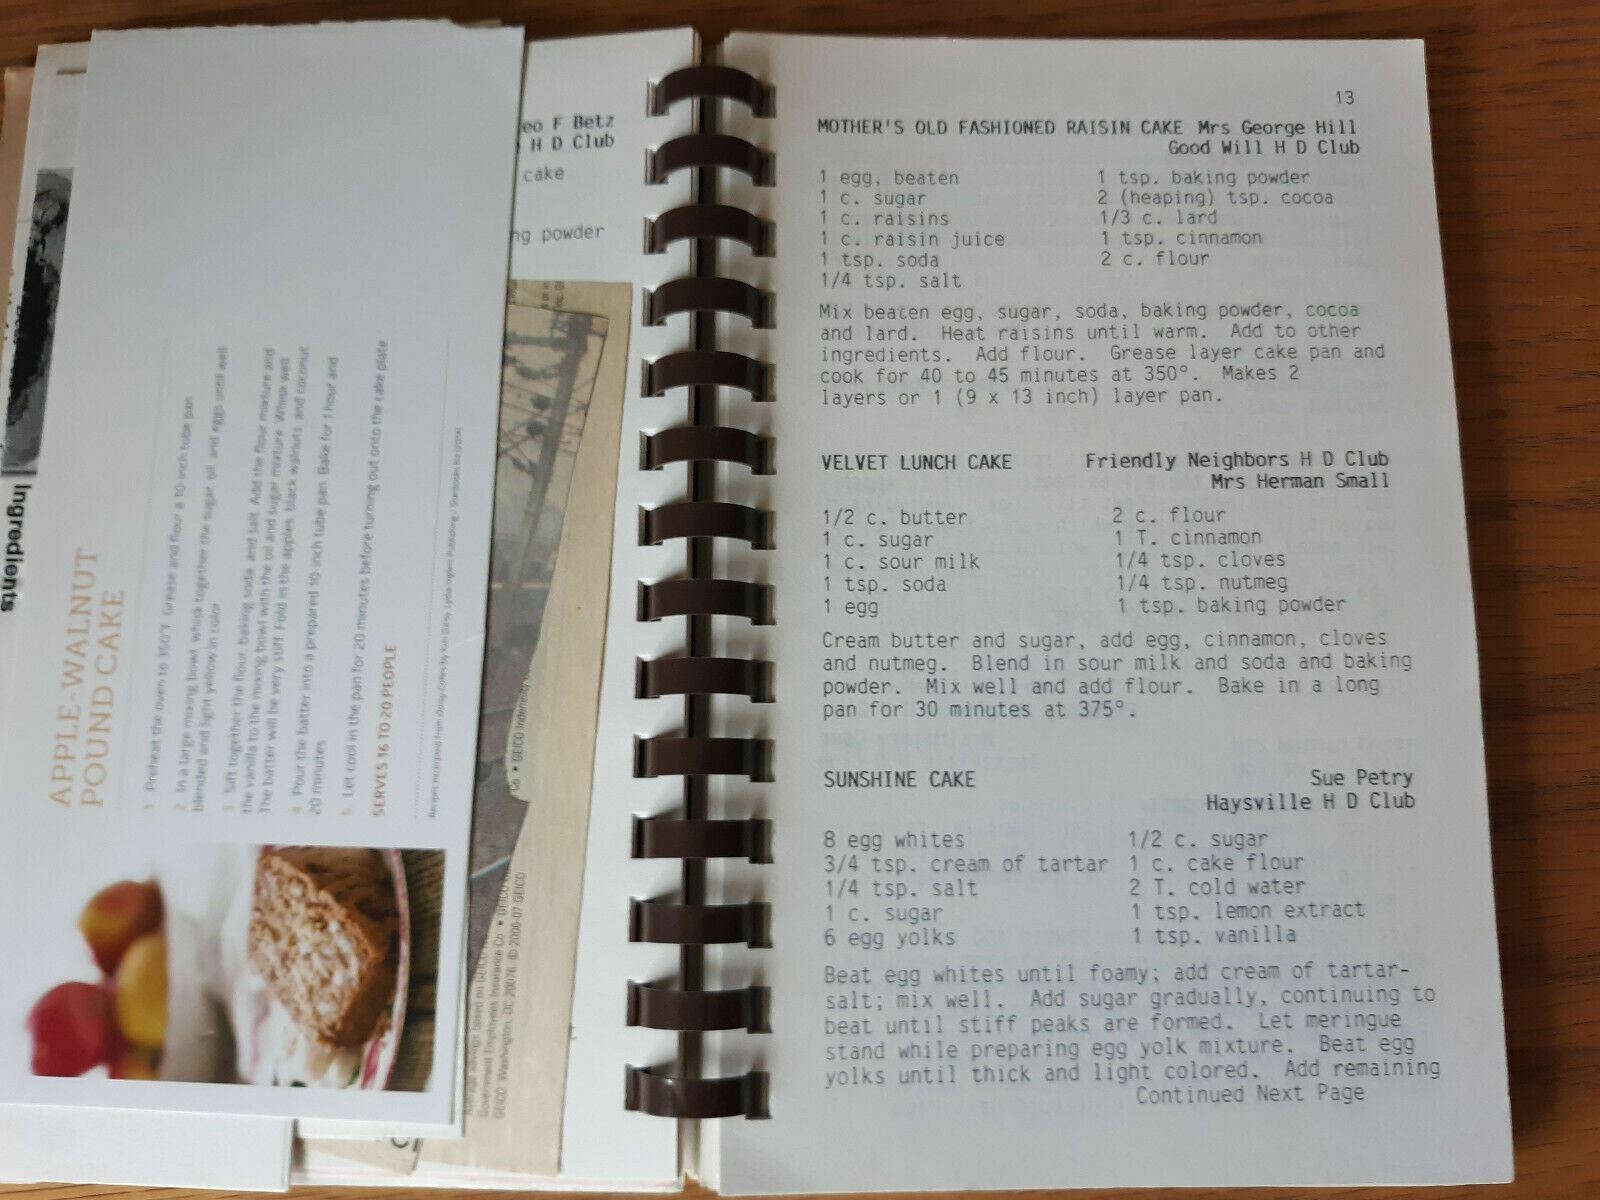 Ingredients
APPLE-WALNUT
POUND CAKE
1 Preheat the oven to 350°F. Grease and flour a 10-inch tube pan.
2 In a large mixing bowl, whisk together the sugar, oil, and eggs until well
blended and light yellow in color.
3 Sift together the flour, baking soda, and salt. Add the flour mixture and
the vanilla to the mixing bowl with the oil and sugar mixture. Whisk well.
The batter will be very stiff. Fold in the apples, black walnuts, and coconut.
4 Pour the batter into a prepared 10-inch tube pan. Bake for 1 hour and
20 minutes.
5 Let cool in the pan for 20 minutes before turning out onto the cake plate.
SERVES 16 TO 20 PEOPLE
eo F Betz
H D Club
cake
ng powder
Co. • GEICO Indemnity
Government Employees Insurance Co. • GEICO
GEICO Washington, DC 20076. © 2006-07 GEICO
13
MOTHER'S OLD FASHIONED RAISIN CAKE Mrs George Hill
Good Will H D Club
1 egg, beaten 1 tsp. baking powder
1 c. sugar 2 (heaping) tsp. cocoa
1 c. raisins 1/3 c. lard
1 c. raisin juice 1 tsp. cinnamon
1 tsp. soda 2 c. flour
1/4 tsp. salt
Mix beaten egg, sugar, soda, baking powder, cocoa
and lard. Heat raisins until warm. Add to other
ingredients. Add flour. Grease layer cake pan and
cook for 40 to 45 minutes at 350°. Makes 2
layers or 1 (9 x 13 inch) layer pan.
VELVET LUNCH CAKE Friendly Neighbors H D Club
Mrs Herman Small
1/2 c. butter 2 c. flour
1 c. sugar 1 T. cinnamon
1 c. sour milk 1/4 tsp. cloves
1 tsp. soda 1/4 tsp. nutmeg
1 egg 1 tsp. baking powder
Cream butter and sugar, add egg, cinnamon, cloves
and nutmeg. Blend in sour milk and soda and baking
powder. Mix well and add flour. Bake in a long
pan for 30 minutes at 375°.
SUNSHINE CAKE Sue Petry
Haysville H D Club
8 egg whites 1/2 c. sugar
3/4 tsp. cream of tartar 1 c. cake flour
1/4 tsp. salt 2 T. cold water
1 c. sugar 1 tsp. lemon extract
6 egg yolks 1 tsp. vanilla
Beat egg whites until foamy; add cream of tartar-
salt; mix well. Add sugar gradually, continuing to
beat until stiff peaks are formed. Let meringue
stand while preparing egg yolk mixture. Beat egg
yolks until thick and light colored. Add remaining
Continued Next Page